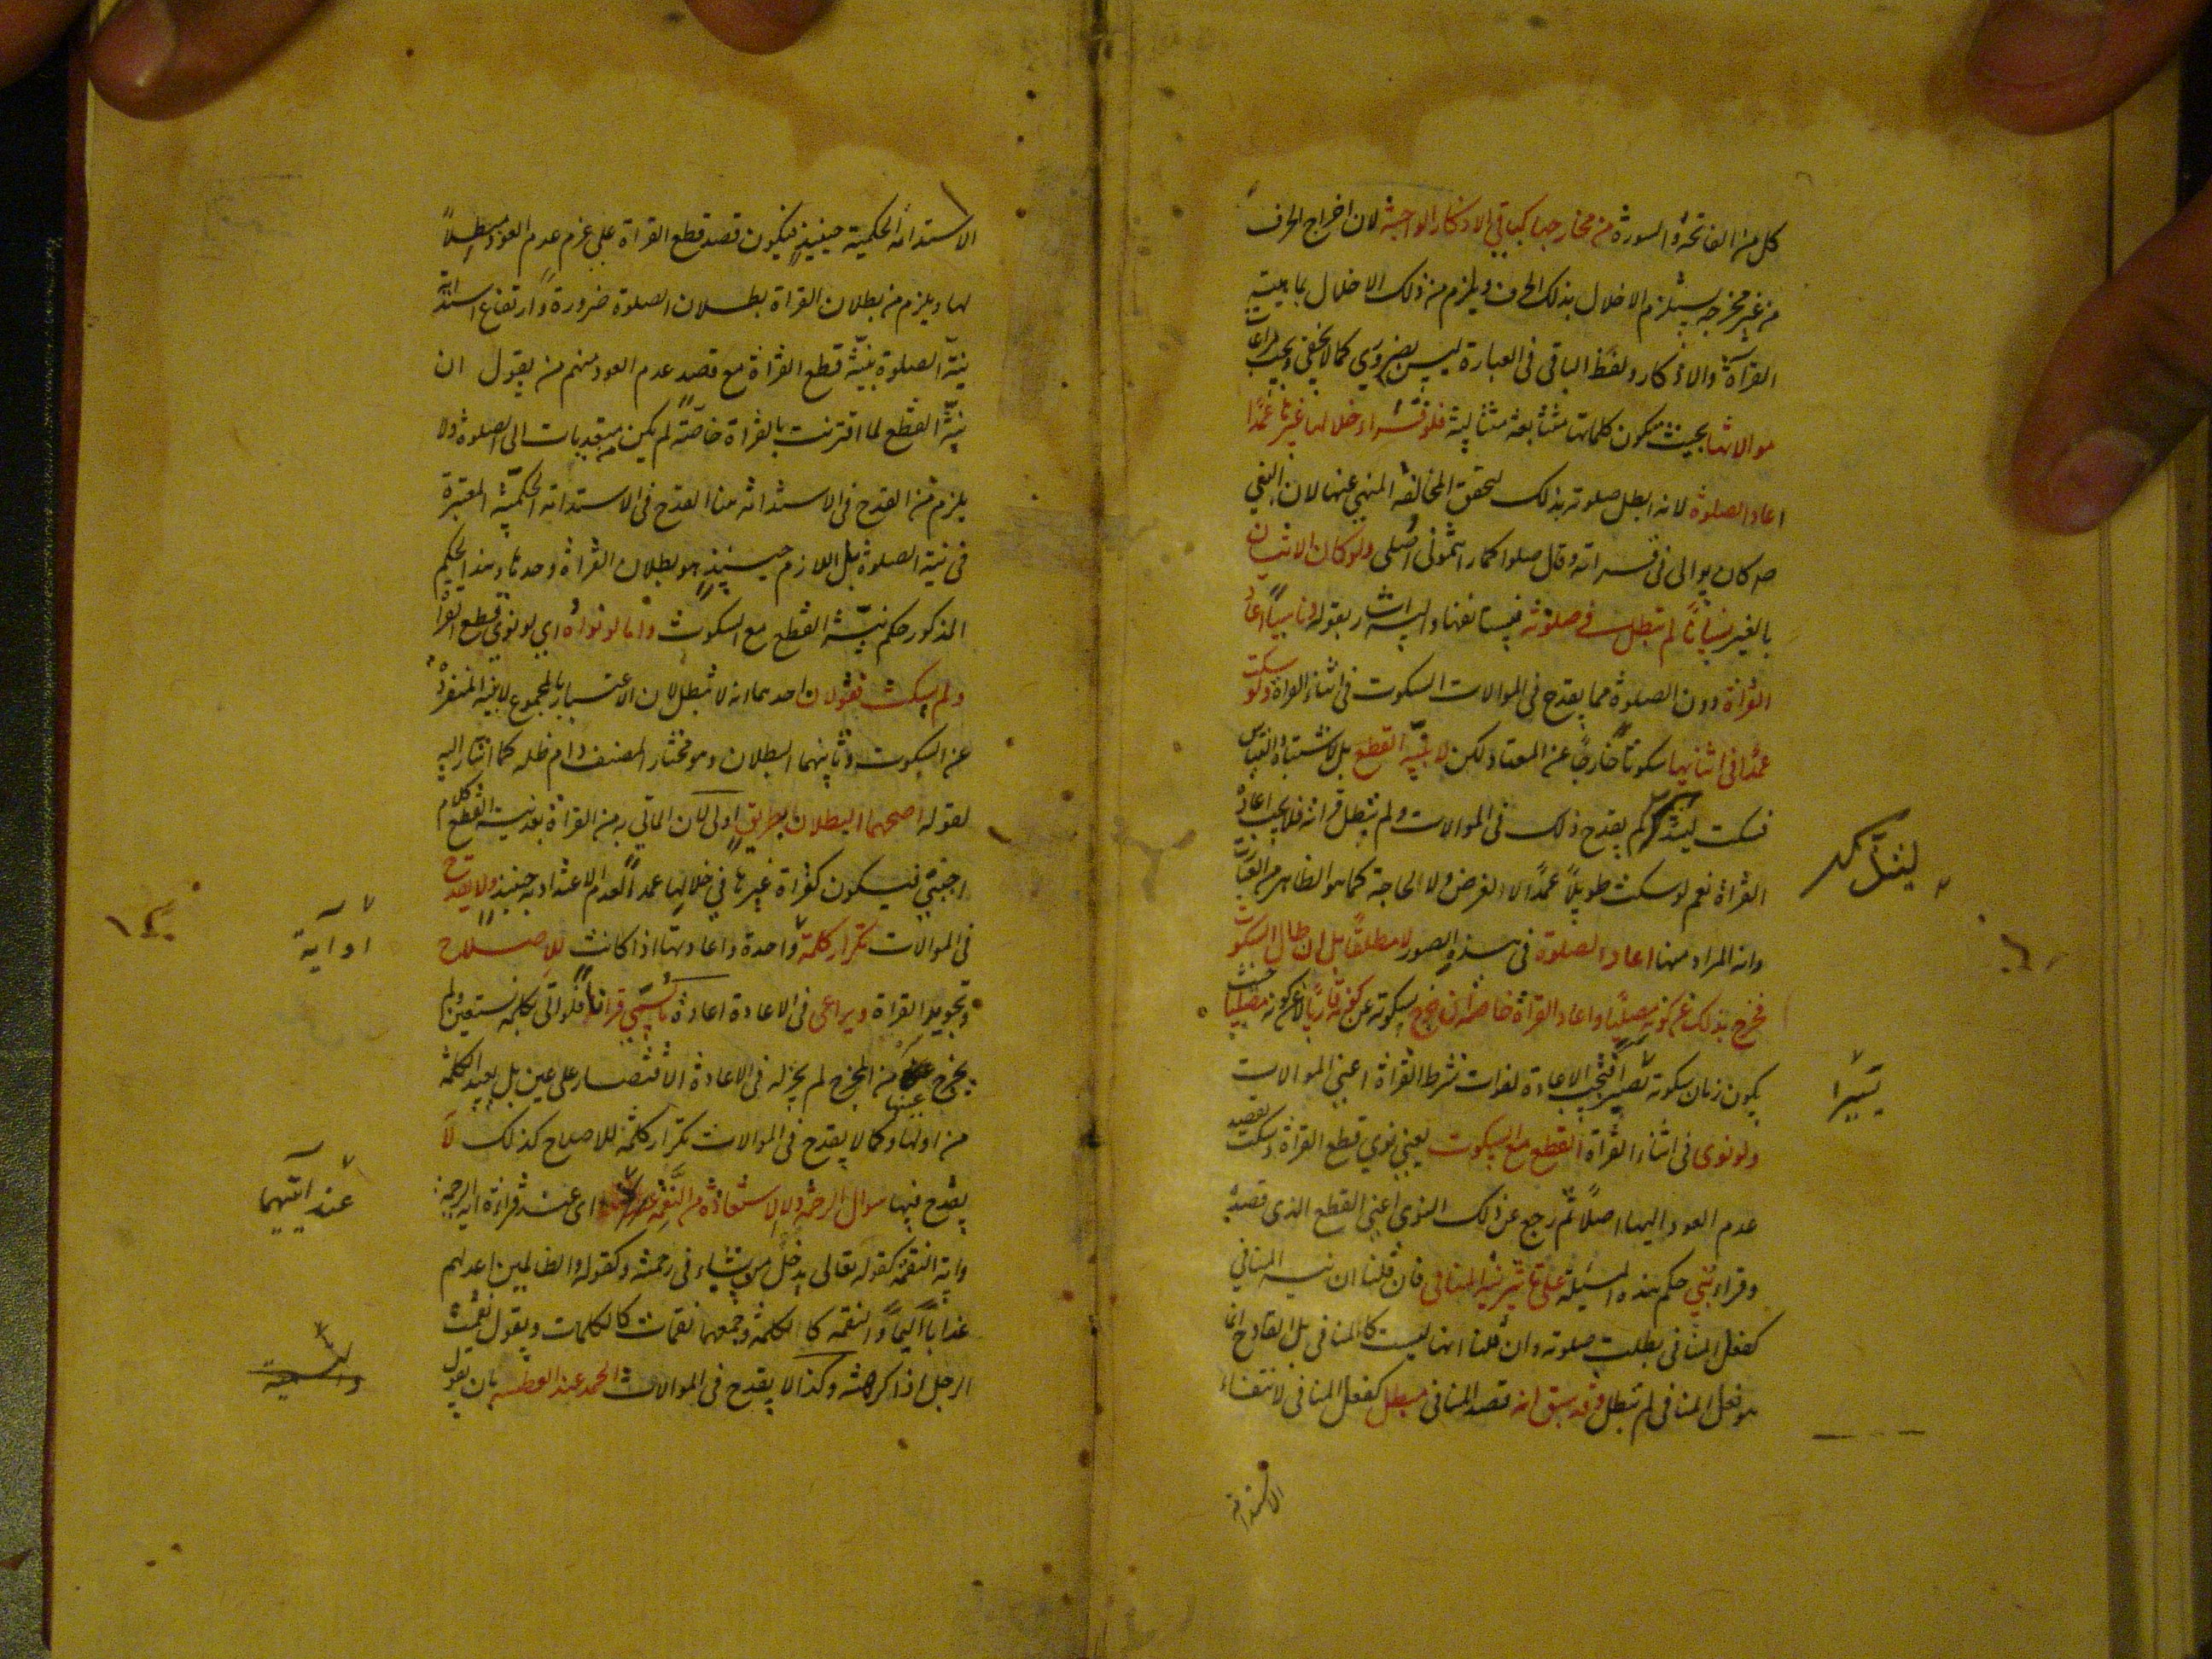 كل من الفاتحة والسورة من مخارجها كباقي الاذكار الواجبة لان اخراج الحرف
من غير مخرجه يستلزم الاخلال بذلك الحرف ويلزم من ذلك الاخلال بماهية
القرآة والاذكار ولفظ الباقي في العبارة ليس بضروري كما لا يخفى ويجب مراعات
موالاتها بحيث يكون كلماتها متتابعة متتالية فلو قراء خلالها غيرها عمدًا
اعاد الصلوة لانه ابطل صلوته بذلك لتحقق المخالفة المنهي عنها لان النبي
صه كان يوالى في قراته وقال صلوا كما رايتموني اصلى ولو كان الاتيان
بالغير نسيانًا لم تبطل صلوته فيستانفها واليه اشار بقوله وناسيًا اعاد
القراة دون الصلوة مما يقدح في الموالات السكوت في اثناء القراة ولو سكت
عمدًا في اثنائها سكوتًا خارجًا عن المعتاد لكن لا بنية القطع بل لاشتباه والتباس
فسكت ليتذكر لم يقدح ذلك في الموالات ولم تبطل قراته فلا يجب اعادة
ليتذكر
القراة نعم لو سكت طويلًا عمدًا لا لغرض ولا لحاجة كما هو الظاهر من العبارت
وانه المراد منها اعاد الصلوة في هذه الصور لا مطلقًا بل ان طال السكوت
فخرج بذلك عن كونه مصليًا واعاد القراة خاصة ان خرج بسكوته عن كونه قاريًا لا عن كونه مصليًا بحيث
يكون زمان سكوته قصيرًا فتجب الاعادة لفوات شرط القراة اعني الموالات
يسيرًا
ولو نوى في اثناء القرآة القطع مع السكوت يعني نوي قطع القراة وسكت بقصد
عدم العود اليها اصلًا ثم رجع عن ذلك النوي اعني القطع الذى قصده
وقراء بُني حكم هذه المسئلة على تاثير نية المنافى فان قلنا ان نيه المنافي
كفعل المنافى بطلت صلوته وان قلنا انها ليست كالمنافى بل القادح انما
هو فعل المنافى لم تبطل وقد سبق انه قصد المنافى مبطل كفعل المنافى لانتفاء
الاستدامة
الاستدامة الحكمية حينئيذ فيكون قصد قطع القراة على عزم عدم العود مبطلًا
لها ويلزم من بطلان القراة بطلان الصلوة ضرورة وارتفاع استدامة
نيّة الصلوة بنيّة قطع القراة مع قصد عدم العود منهم من يقول ان
نيّة القطع لما اقترنت بالقراة خاصّة لم يكن متعديات الى الصلوة ولا
يلزم من القدح في الاستدامة هنا القدح في الاستدامة الحكميّة المعتبرة
في نية الصلوة بل اللازم حينئيذ هو بطلان القراة وحدها وهذا الحكم
المذكور حكم نيّة القطع مع السكوت واما لو نواه اي لو نوى قطع القراة
ولم يسكت فقولان احدهما انه لا تبطل لان الاعتبار بالمجموع لا بنية المنفردة
عن السكوت وثانيهما البطلان وهو مختار المصنف دام ظله كما اشار اليه
بقوله اصحهما البطلان بطريق اولى لان الماتي به من القراة بعد نية القطع كلام
اجنبيّ فيكون كقراة غيرها في خلالها عمدًا لعدم الاعتداد به حينئيذ ولا يقدح
في الموالات تكرار كلمة واحدة واعادتها اذا كانت للاصلاح
او آية
وتجويد القراة ويراعى في الاعادة اعادة ما يسمّى قرانًا فلو اتى بكلمة نستعين ولم
يخرج عينها من المخرج لم يجز له في الاعادة الاقتصار على عين بل يعيد الكلمة
من اولها وكما لا يقدح في الموالات تكرار كلمة للاصلاح كذلك لا
يقدح فيها سوال الرحمة ولا الاستعاذة من النقمة اى عند قراءة اية الرحمة
عند آيتيهما
واية النقمة كقوله تعالى يدخل من يشاء في رحمته وكقوله والظالمين اعد لهم
عذابًا اليمًا والنقمة كالكلمة وجمعها نقمات كالكلمات ويقول نقمت
الرجل اذا كرهته وكذا لا يقدح في الموالات الحمد عند العطسه بان يقول